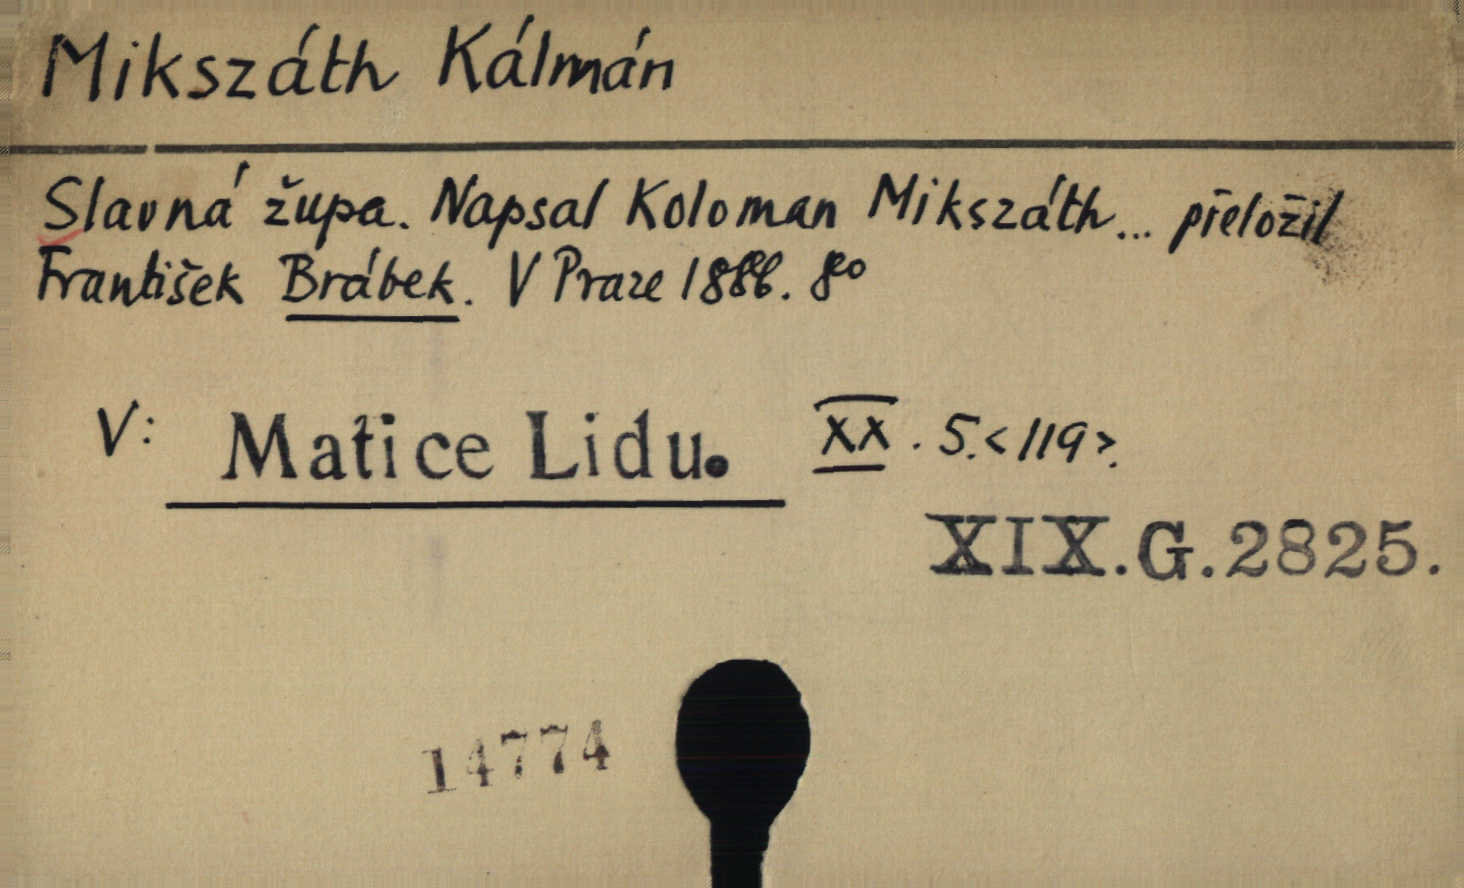 Mikszáth Kálmán
Slavná župa. Napsal Koloman Mikszáth... přeložil
František Brábek. V Praze 1886. 8o
V: Matice Lidu. XX. 5.<119>.
XIX.G.2825.
14774